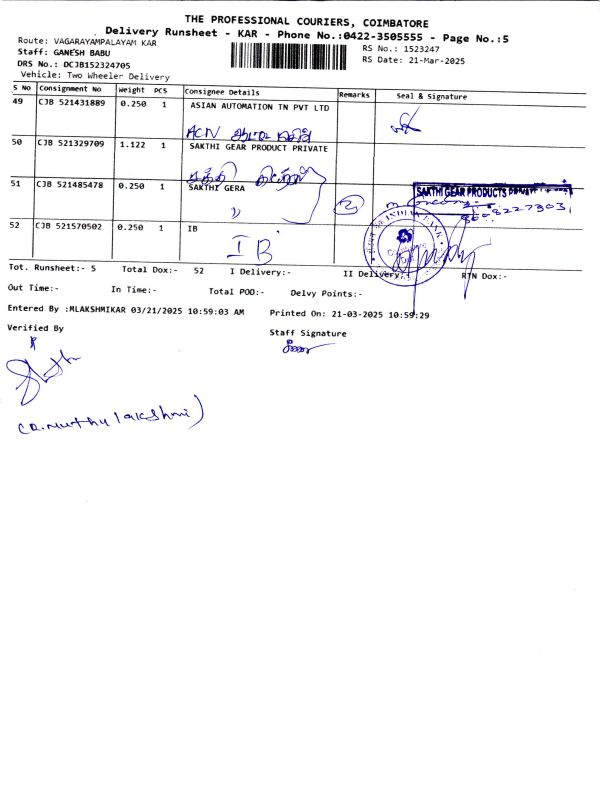 THE PROFESSIONAL COURIERS, COIMBATORE
Delivery Runsheet - KAR - Phone No.:0422-3505555 - Page No.:5
Route: VAGARAYAMPALAYAM KAR
RS No.: 1523247
Staff: GANESH BABU
RS Date: 21-Mar-2025
DRS No.: DCJB152324705
Vehicle: Two Wheeler Delivery
S No Consignment No Weight PCS Consignee Details Remarks Seal & Signature
49 CJB 521431889 0.250 1 ASIAN AUTOMATION TN PVT LTD
ACN
50 CJB 521329709 1.122 1 SAKTHI GEAR PRODUCT PRIVATE
சக்தி
51 CJB 521485478 0.250 1 SAKTHI GERA
SAKTHI GEAR PRODUCTS
2
52 CJB 521570502 0.250 1 IB
INDIAN BANK
IB
Tot. Runsheet:- 5 Total Dox:- 52 I Delivery:- II Delivery:- RTN Dox:-
Out Time:- In Time:- Total POD:- Delvy Points:-
Entered By :MLAKSHMIKAR 03/21/2025 10:59:03 AM Printed On: 21-03-2025 10:59:29
Verified By
Staff Signature
(R.Muthulakshmi)